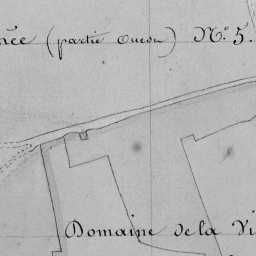 née (partie Ouest) N.º 5.
Domaine de la Vi